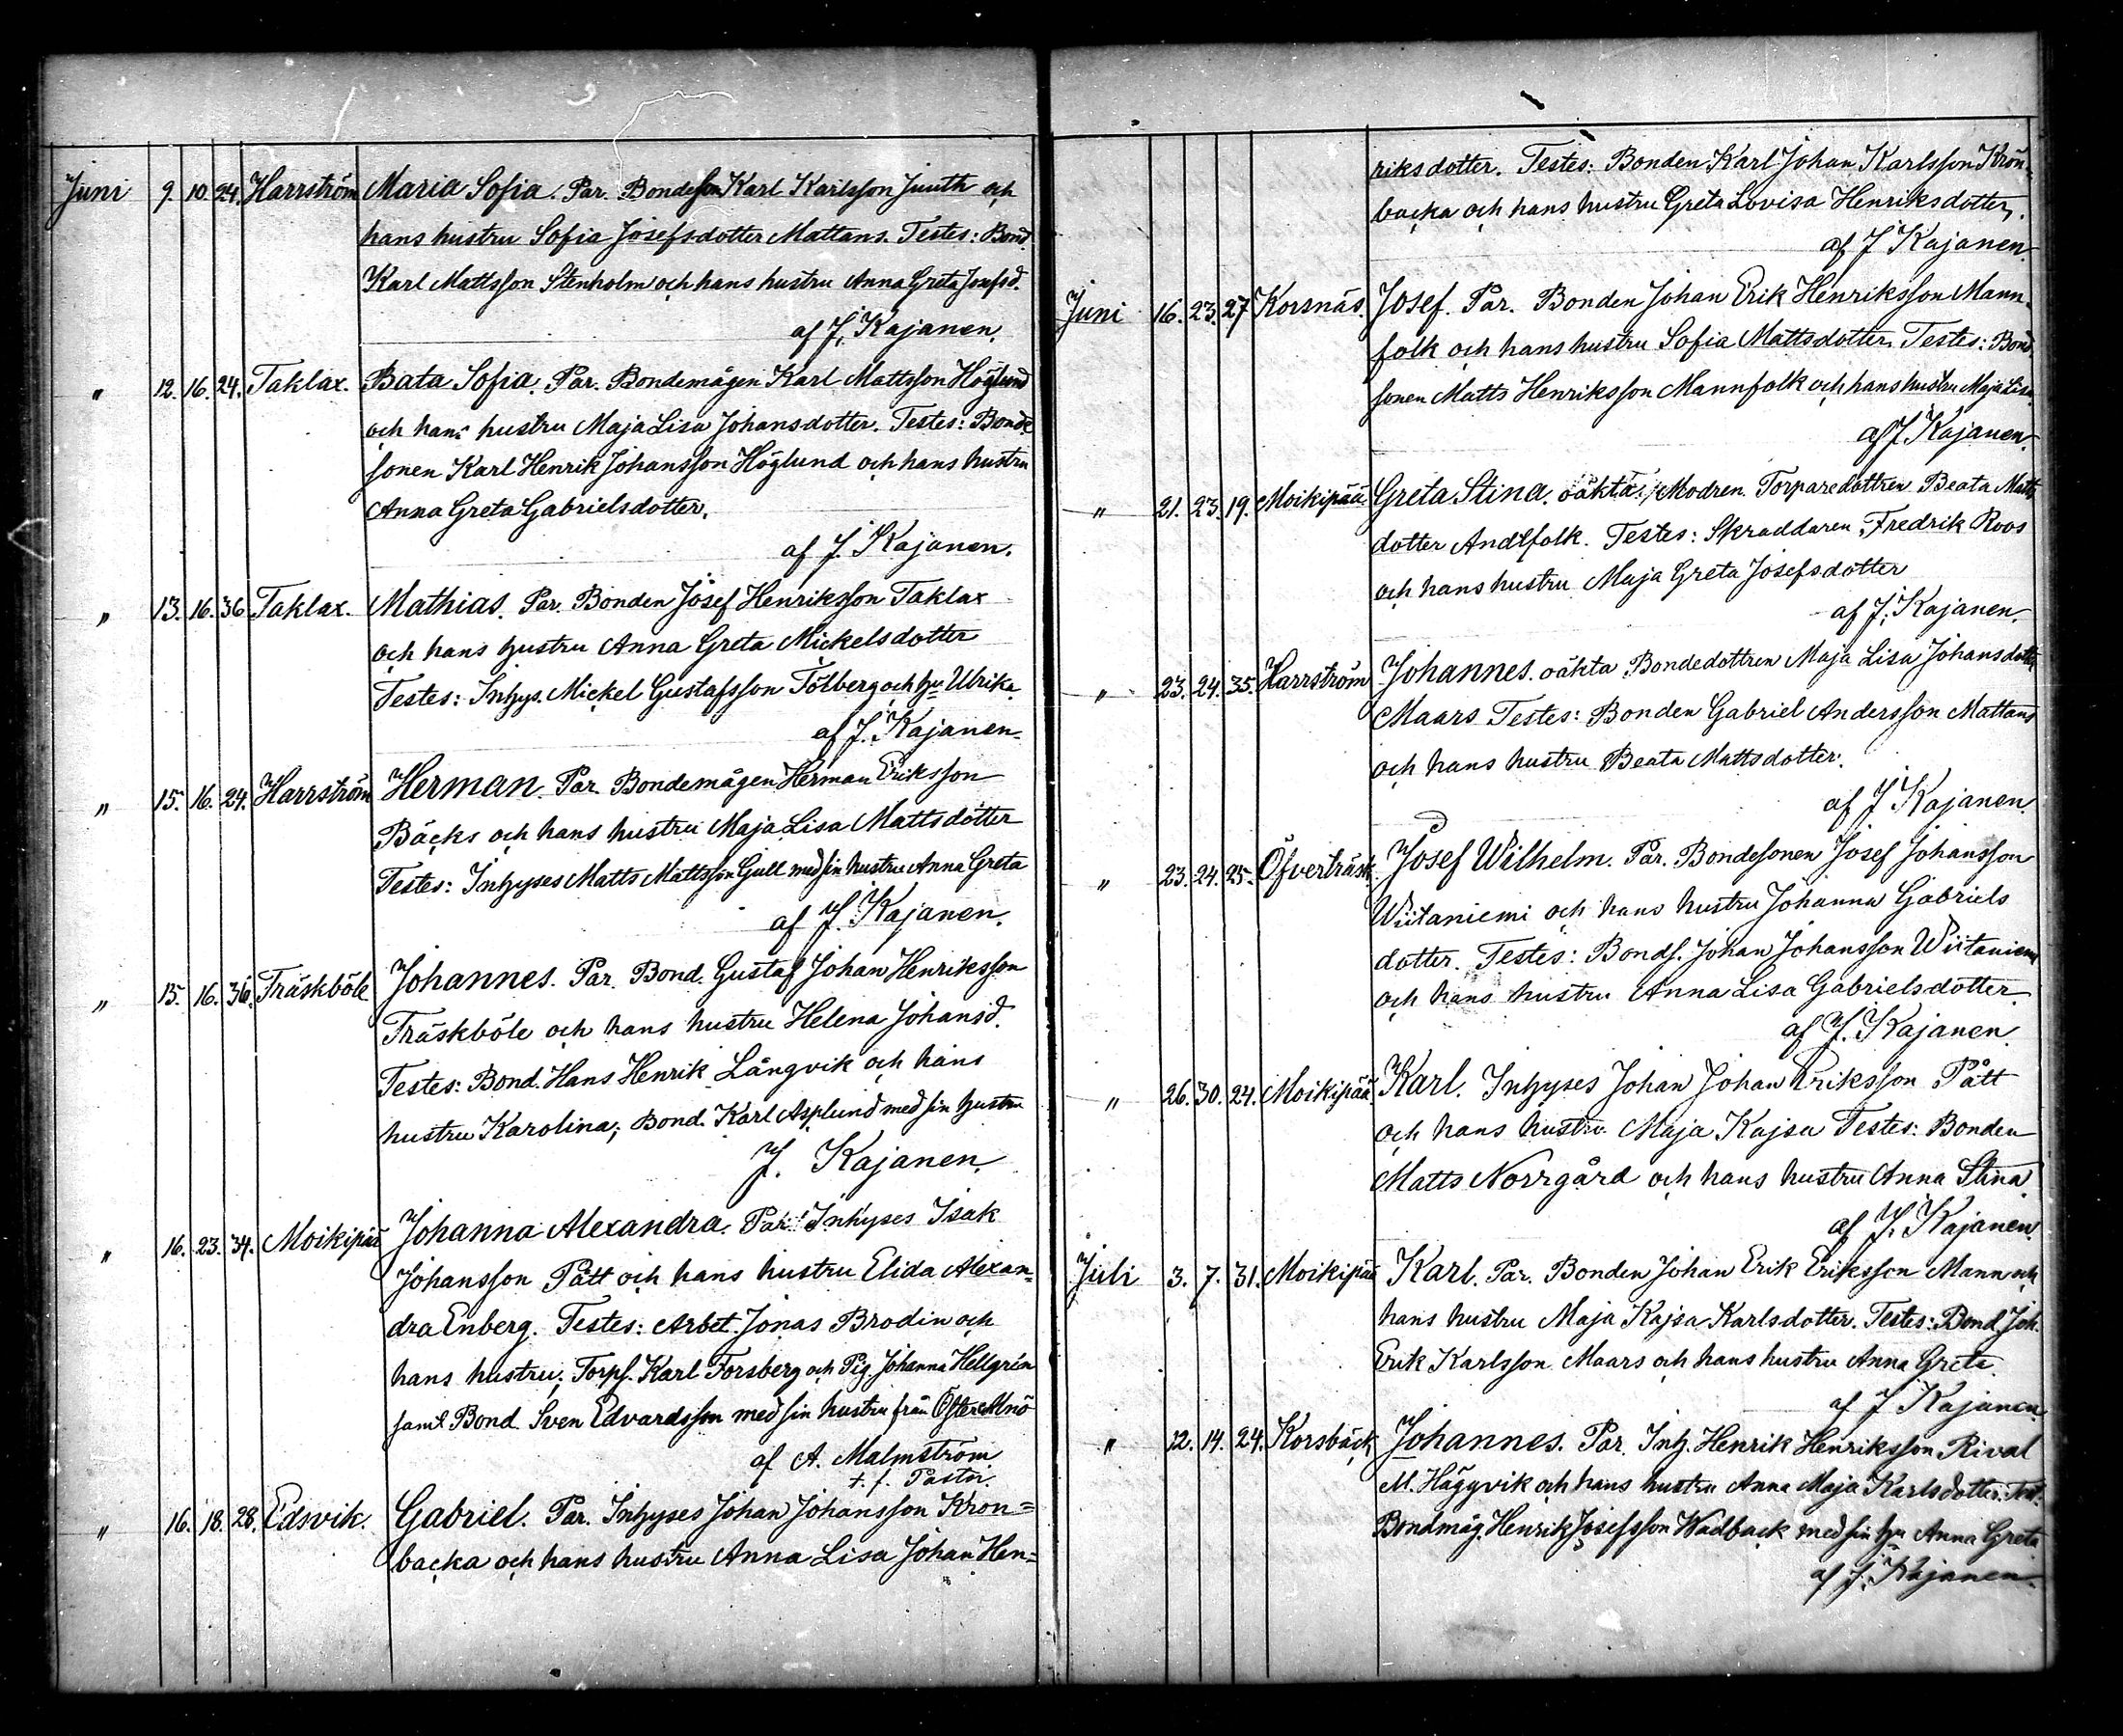 Juni 9. 10. 24. Harrström Maria Sofia. Par. Bondeson Karl Karlsson Juuth och
hans hustru Sofia Josefsdotter Mattans. Testes: Bond.
Karl Mattsson Stenholm och hans hustru Anna Greta Josefsd.
af J. Kajanen.
" 12. 16. 24. Taklax. Bata Sofia. Par. Bondemågen Karl Mattsson Höglund
och hans hustru Maja Lisa Johansdotter. Testes: Bonde
sonen Karl Henrik Johansson Höglund och hans hustru
Anna Greta Gabrielsdotter.
af J. Kajanen.
" 13. 16. 36 Taklax. Mathias. Par. Bonden Josef Henriksson Taklax
och hans hustru Anna Greta Mickelsdotter
Testes: Inhys. Mickel Gustafsson Tölberg och hu Ulrika.
af J. Kajanen.
" 15. 16. 24. Harrström Herman. Par. Bondemågen Herman Eriksson
Bäcks och hans hustru Maja Lisa Mattsdotter
Testes: Inhyses Matts Mattsson Gull med sin hustru Anna Greta
af J. Kajanen.
" 15. 16. 36. Träskböle Johannes. Par. Bond. Gustaf Johan Henriksson
Träskböle och hans hustru Helena Johansd.
Testes: Bond. Hans Henrik Långvik och hans
hustru Karolina; Bond. Karl Asplund med sin hustru
J. Kajanen.
" 16. 23. 34. Moikipää Johanna Alexandra. Par. Inhyses Isak
Johansson Pått och hans hustru Elida Alexan=
dra Enberg. Testes: Arbet. Jonas Brodin och
hans hustru; Torps. Karl Forsberg och Pig. Johanna Hellgrén
saml Bond. Sven Edvardsson med sin hustru från
af A. Malmström
t. f. Pastor.
" 16. 18. 28. Edsvik. Gabriel. Par. Inhyses Johan Johansson Kron=
backa och hans hustru Anna Lisa Johan Hen=
riksdotter. Testes: Bonden Karl Johan Karlsson Kron=
backa och hans hustru Greta Lovisa Henriksdotter.
af J Kajanen.
Juni 16. 23. 27 Korsnäs. Josef. Par. Bonden Johan Erik Henriksson Mann=
folk och hans hustru Sofia Mattsdotter. Testes: Bond
sonen Matts Henriksson Mannfolk och hans hustru Maja Lisa.
af J. Kajanen.
" 21. 23. 19. Moikipää Greta Stina. oäkta. Modren. Torparedottren Beata Matts
dotter Andlfolk. Testes: Skraddaren Fredrik Roos
och hans hustru Maja Greta Josefsdotter
af J. Kajanen.
" 23. 24. 35. Harrström Johannes. oäkta. Bondedottren Maja Lisa Johansdotter
Maars Testes: Bonden Gabriel Andersson Mattans
och hans hustru Beata Mattsdotter.
af J Kajanen.
" 23. 24. 25. Öfverträsk. Josef Wilhelm. Par. Bondesonen Josef Johansson
Wiitaniemi och hans hustru Johanna Gabriels
dotter. Testes: Bonds. Johan Johansson Wiitaniemi
och hans hustru Anna Lisa Gabrielsdotter.
af J. Kajanen.
" 26. 30. 24. Moikipää Karl. Inhyses Johan Johan Eriksson Pått
och hans hustru Maja Kajsa Testes: Bonden
Matts Norrgård och hans hustru Anna Stina.
af J. Kajanen.
Juli 3. 7. 31. Moikipää Karl. Par. Bonden Johan Erik Eriksson Mann och
hans hustru Maja Kajsa Karlsdotter. Testes: Bond. Joh.
Erik Karlsson Maars och hans hustru Anna Greta.
af J Kajanen.
" 12. 14. 24. Korsbäck Johannes. Par. Inh. Henrik Henriksson Rival
M. Häggvik och hans hustru Anna Maja Karlsdotter. Test.
Bondmåg. Henrik Josefsson Wadback med sin hu Anna Greta.
af J. Kajanen.